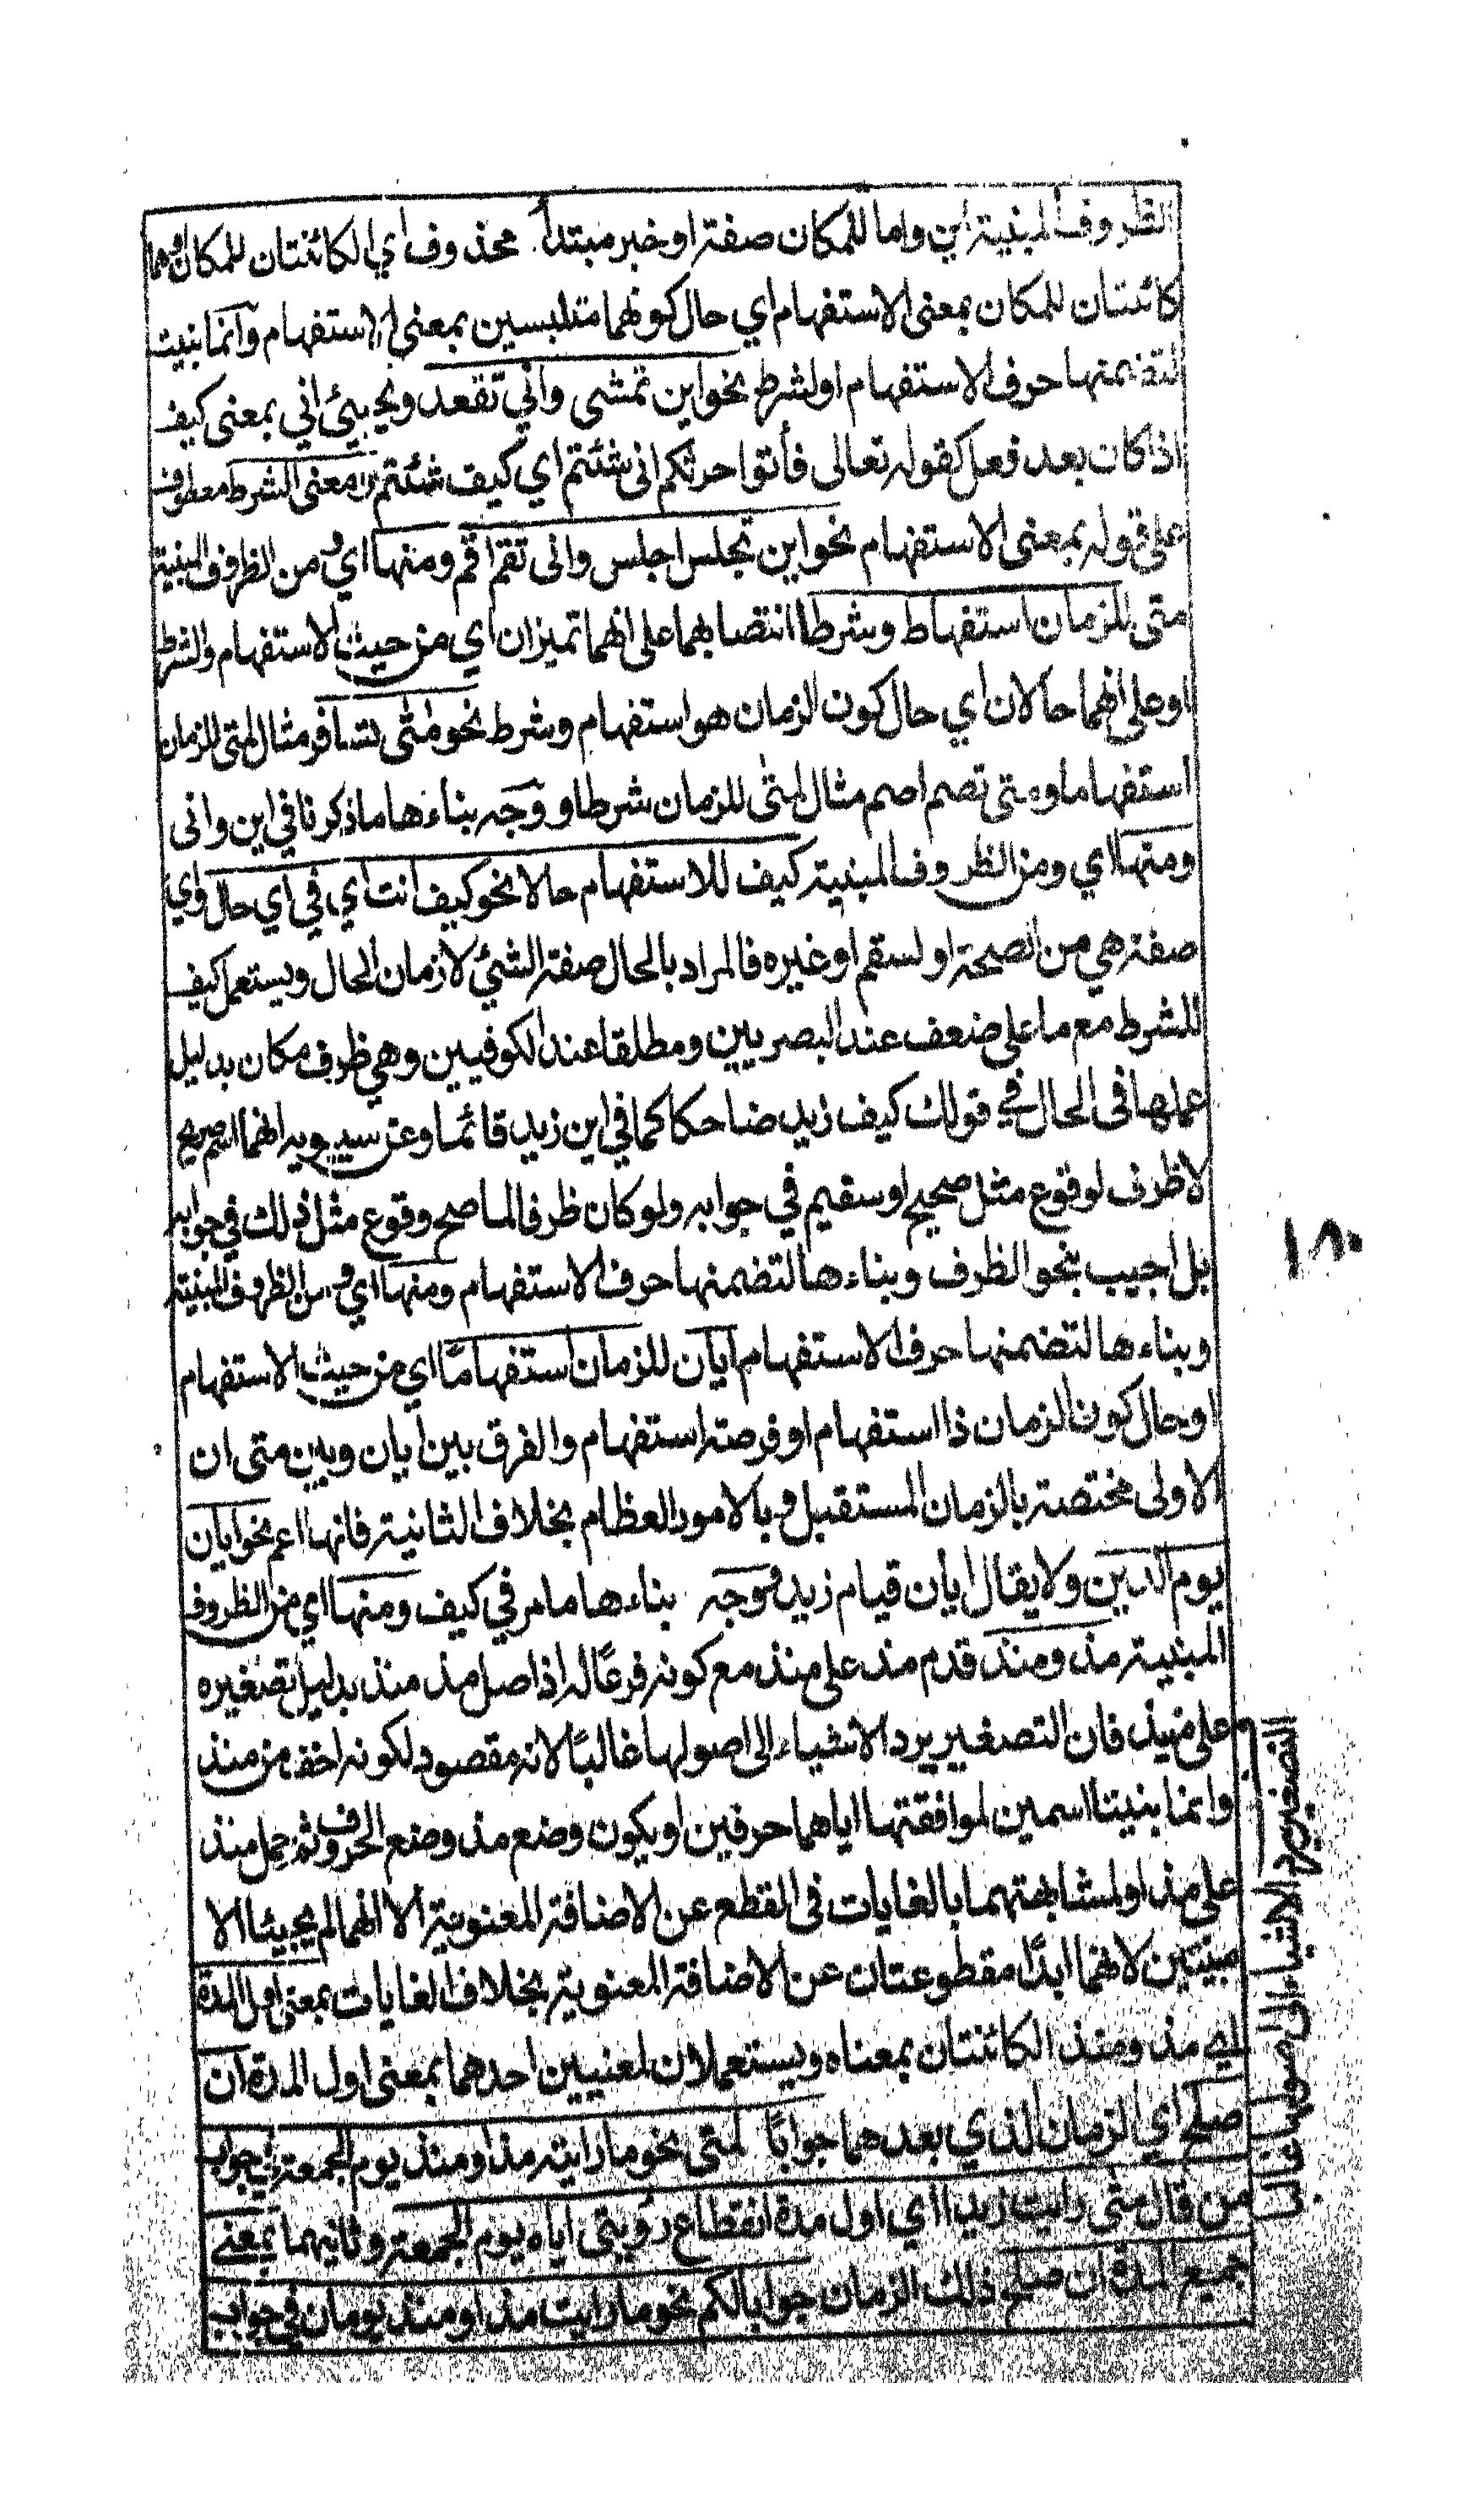 الظروف المبنية اين واما للمكان صفة او خبر مبتدأ محذوف اي الكائنتان للمكان او هما
كائنتان للمكان بمعنى الاستفهام اي حال كونهما متلبسين بمعنى الاستفهام وانما بنيت
لتضمنها حرف الاستفهام او لشرط نحو اين تمشى واني تقعد ويجيئ اني بمعنى كيف
اذا كان بعد فعل كقوله تعالى فأتوا حرثكم انى شئتم اي كيف شئتم ومعنى الشرط معطوف
على قوله بمعنى الاستفهام نحو اين تجلس اجلس وانى تقم اقم ومنها اي ومن الظروف المبنية
متى للزمان استفهاما وشرطا انتصابهما على انهما تميزان اي من حيث الاستفهام والشرط
او على انهما حالان اي حال كون الزمان هو استفهام وشرط نحو متى تسافر مثال لمتى للزمان
استفهاما ومتى تصم اصم مثال لمتى للزمان شرطا ووجه بناءها ما ذكرنا في اين وانى
ومنها اي ومن الظروف المبنية كيف للاستفهام حالا نحو كيف انت اي في اي حال واي
صفة هي من الصحة او لسقم او غيره فالمراد بالحال صفة الشئ لا زمان الحال ويستعمل كيف
للشرط مع ما على ضعف عند البصريين ومطلقا عند الكوفيين وهي ظرف مكان بدليل
عملها في الحال في قولك كيف زيد ضاحكا كما في اين زيد قائما وعن سيبويه انهما اسم صريح
لا ظرف لوقوع مثل صحيح او سقيم في جوابه ولو كان ظرفا لما صح وقوع مثل ذلك في جوابه
بل اجيب بنحو الظرف وبناءها لتضمنها حرف الاستفهام ومنها اي ومن الظروف المبنية
وبناءها لتضمنها حرف الاستفهام ايان للزمان استفهامًا اي من حيث الاستفهام
او حال كون الزمان ذا استفهام او فرصة استفهام والفرق بين ايان وبين متى ان
الاولى مختصة بالزمان المستقبل وبالامور العظام بخلاف الثانية فانها اعم نحو ايان
يوم الدين ولا يقال ايان قيام زيد ووجه بناءها ما مر في كيف ومنها اي من الظروف
المبنية مذ ومنذ قدم مذ على منذ مع كونه فرعًا له اذ اصل مذ منذ بدليل تصغيره
على منيذ فان التصغير يرد الاشياء الى اصولها غالبًا لانه مقصود لكونه اخف من منذ
وانما بنيتا اسمين لموافقتها اياهما حرفين او يكون وضع مذ وضع الحروف ثم حمل منذ
على مذ او لمشابهتهما بالغايات في القطع عن الاضافة المعنوية الا انهما لم يجيئا الا
مبنيتين لانهما ابدًا مقطوعتان عن الاضافة المعنوية بخلاف الغايات بمعنى اول المدة
اي مذ ومنذ الكائنتان بمعناه ويستعملان لمعنيين احدهما بمعنى اول المدة ان
صلح اي الزمان الذي بعدهما جوابًا لمتى نحو ما رايته مذ او منذ يوم الجمعة في جواب
من قال متى رايت زيدا اي اول مدة انقطاع رؤيتى اياه يوم الجمعة وثانيهما بمعنى
جميع المدة ان صلح ذلك الزمان جوابا لكم نحو ما رايت مذ او منذ يومان في جواب
١٨٠
التصغير يرد الاشياء الى اصولها غالبا